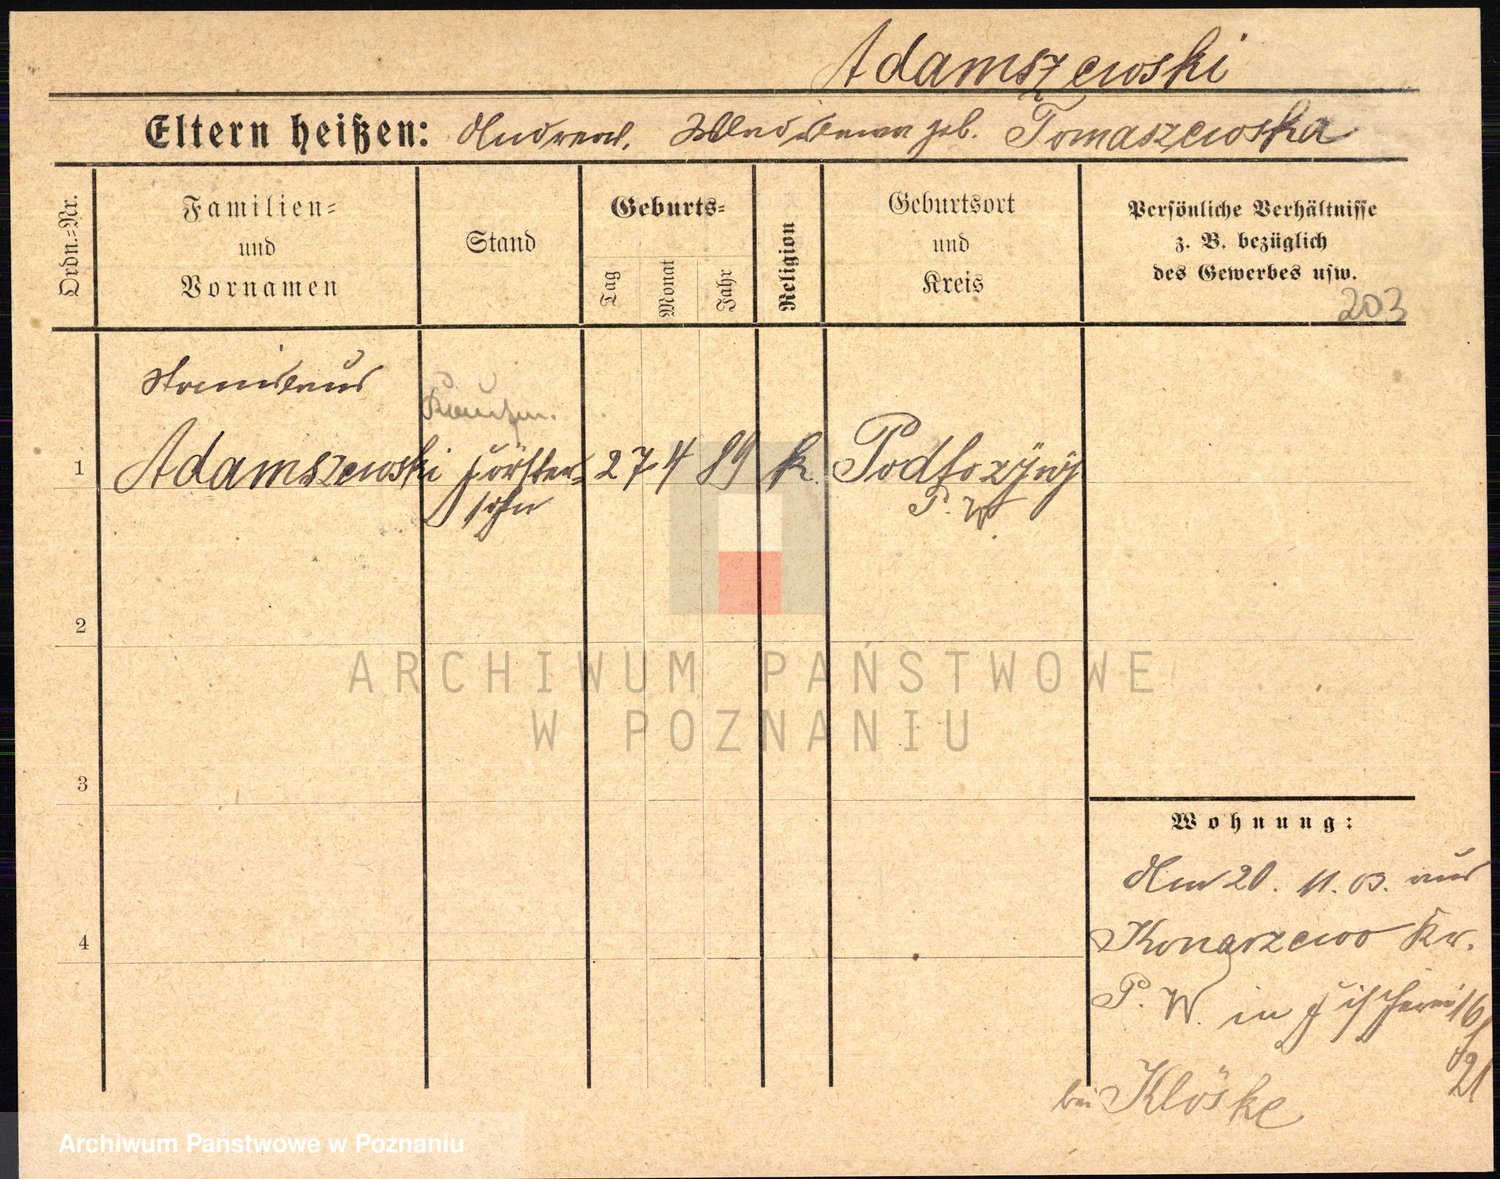 Adamszewski
Eltern heißen: Andreas, geb. Tomaszewska
Ordn.=Nr.
Familien=
und
Vornamen
Stand
Geburts=
Tag
Monat
Jahr
Religion
Geburtsort
und
Kreis
Persönliche Verhältnisse
z. B. bezüglich
des Gewerbes usw.
203
Stanislaus
Kaufm.
1 Adamszewski Förster= 27 4 89 k.
sohn P. W
2
3
4
Wohnung:
Am 20. 11. 03. aus
Konarzewo Kr.
P. W. in Fischerei 16/
21
bei Klöske
ARCHIWUM PAŃSTWOWE
W POZNANIU
Archiwum Państwowe w Poznaniu